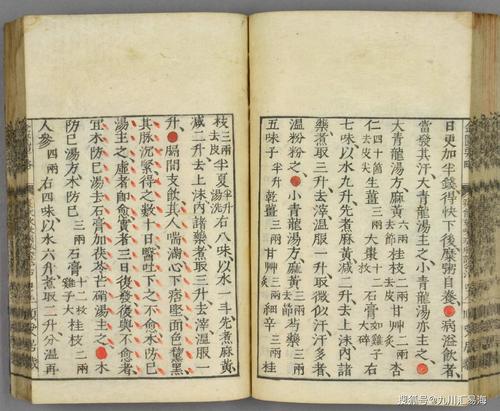 日更加半錢得快下後糜粥自養病溢飲者
當發其汗大青龍湯主之小青龍湯亦主之
大青龍湯方麻黃六兩去節桂枝二兩甘艸二兩杏
仁四十箇去皮尖生薑三兩大棗十二枚石膏如雞子大右
七味以水九升先煮麻黃減二升去上沫內諸
藥煮取三升去滓溫服一升取微似汗汗多者
溫粉粉之小青龍湯方麻黃三兩去節芍藥三兩
五味子半升乾薑三兩甘艸三兩炙細辛三兩
枝三兩去皮半夏半升湯洗右八味以水一斗先煮麻黃
減二升去上沫內諸藥煮取三升去滓溫服一
升膈間支飲其人喘滿心下痞堅面色黧黑
其脉沉緊得之數十日醫吐下之不愈木防已
湯主之虛者即愈實者三日復發復與不愈者
宜木防已湯去石膏加茯苓芒硝湯主之木
防已湯方木防已三兩石膏十二枚雞子大桂枝二兩
人參四兩右四味以水六升煮取二升分溫再
搜狐号@九川汇易海